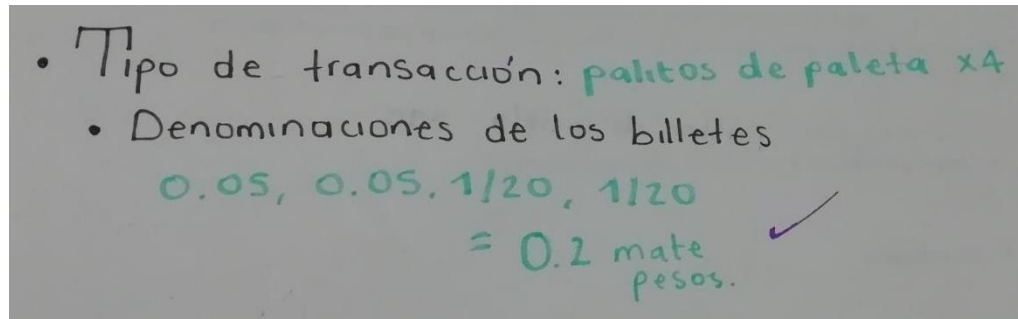 • Tipo de transacción: palitos de paleta x4
• Denominaciones de los billetes
0.05, 0.05. 1/20, 1/20
= 0.2 mate
pesos.